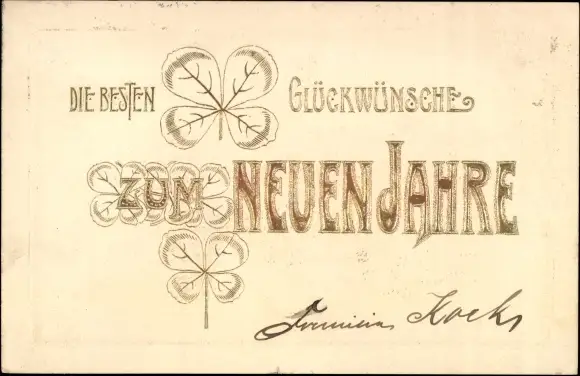 DIE BESTEN GLÜCKWÜNSCHE
ZUM NEUEN JAHRE
Familie Koch